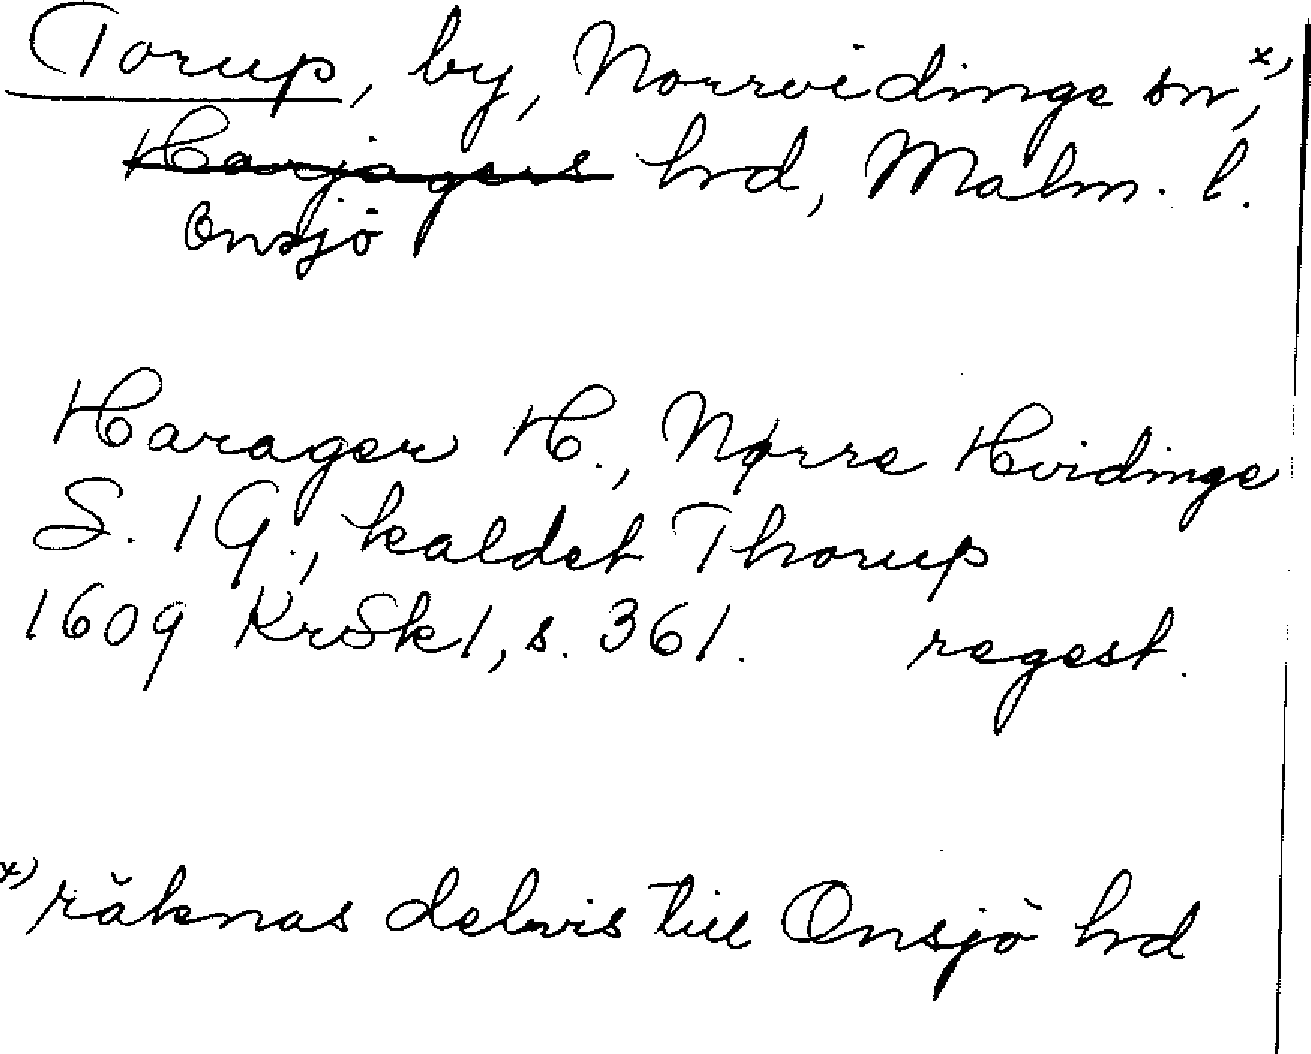 Torup, by, Norrvidinge sn,x)
Harjagers hrd, Malm. l.
Onsjö
Harager H., Nørre Hvidinge
S. 1 G., kaldet Thorup
1609 KrSk 1, s. 361. regest.
x) räknas delvis till Onsjö hrd